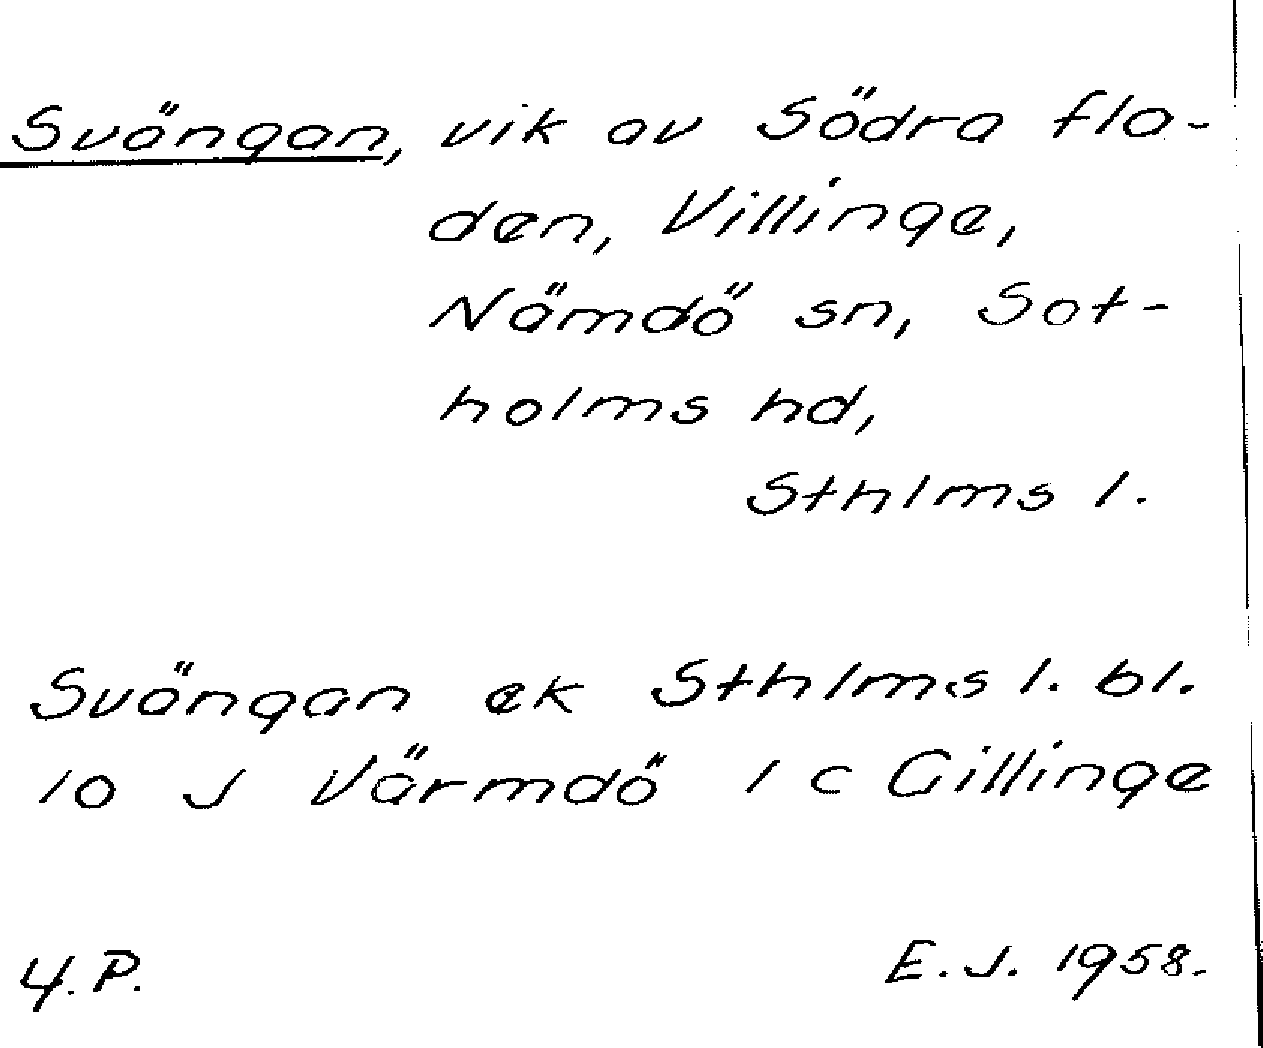 Svängan, vik av Södra fla-
den, Villinge,
Nämdö sn, Sot-
holms hd,
Sthlms l.
Svängan ek Sthlms l. bl.
10 J Värmdö 1 c Gillinge
Y.P. E.J. 1958.